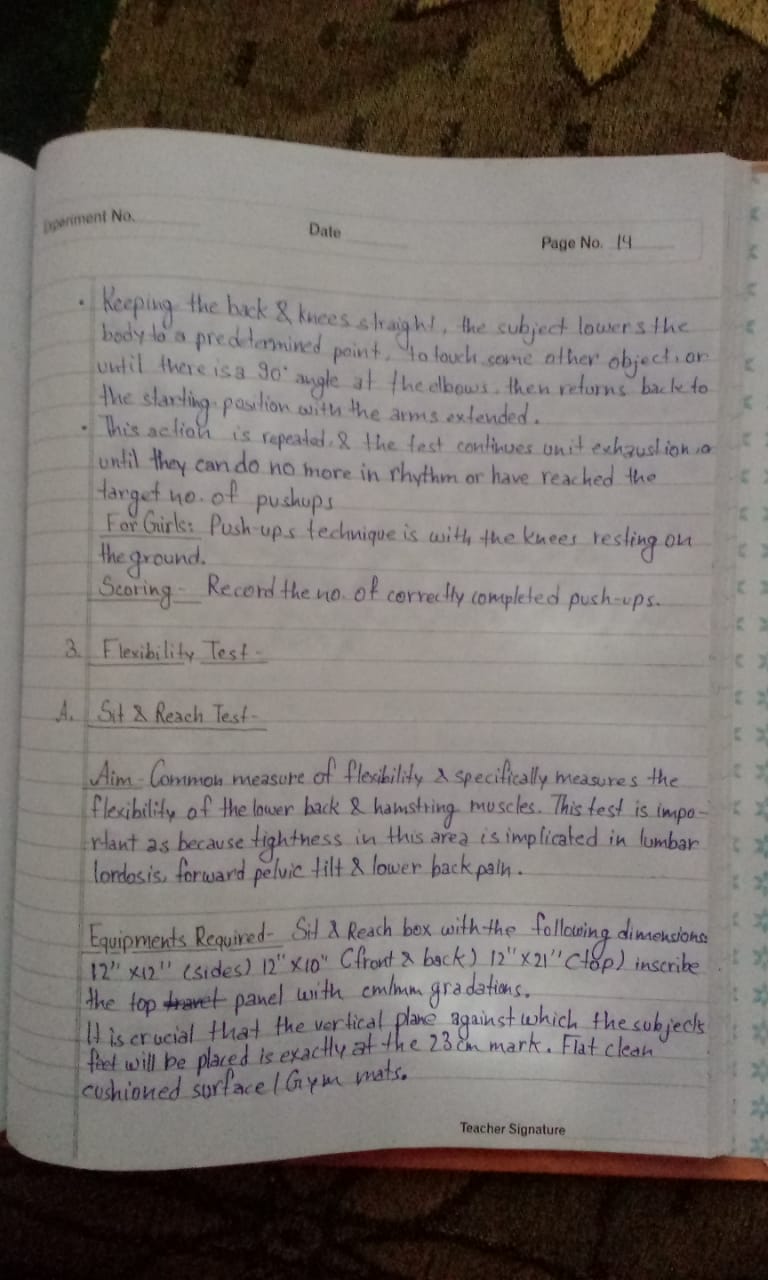 Experiment No.
Date
Page No. 14
• Keeping the back & knees straight, the subject lowers the
body to a predetermined point, to touch some other object, or
until there is a 90° angle at the elbows, then returns back to
the starting position with the arms extended.
• This action is repeated & the test continues unit exhaustion, o
until they can do no more in rhythm or have reached the
target no. of pushups
For Girls: Push-ups technique is with the knees resting on
the ground.
Scoring - Record the no. of correctly completed push-ups.
3. Flexibility Test -
A. Sit & Reach Test -
Aim - Common measure of flexibility & specifically measures the
flexibility of the lower back & hamstring muscles. This test is impo-
rtant as because tightness in this area is implicated in lumbar
lordosis, forward pelvic tilt & lower back pain.
Equipments Required - Sit & Reach box with the following dimensions
12" x12" (sides) 12" x10" (front & back) 12" x 21" (top) inscribe
the top panel with cm/mm gradations.
It is crucial that the vertical plane against which the subjects
feet will be placed is exactly at the 23 cm mark. Flat clean
cushioned surface / Gym mats.
Teacher Signature